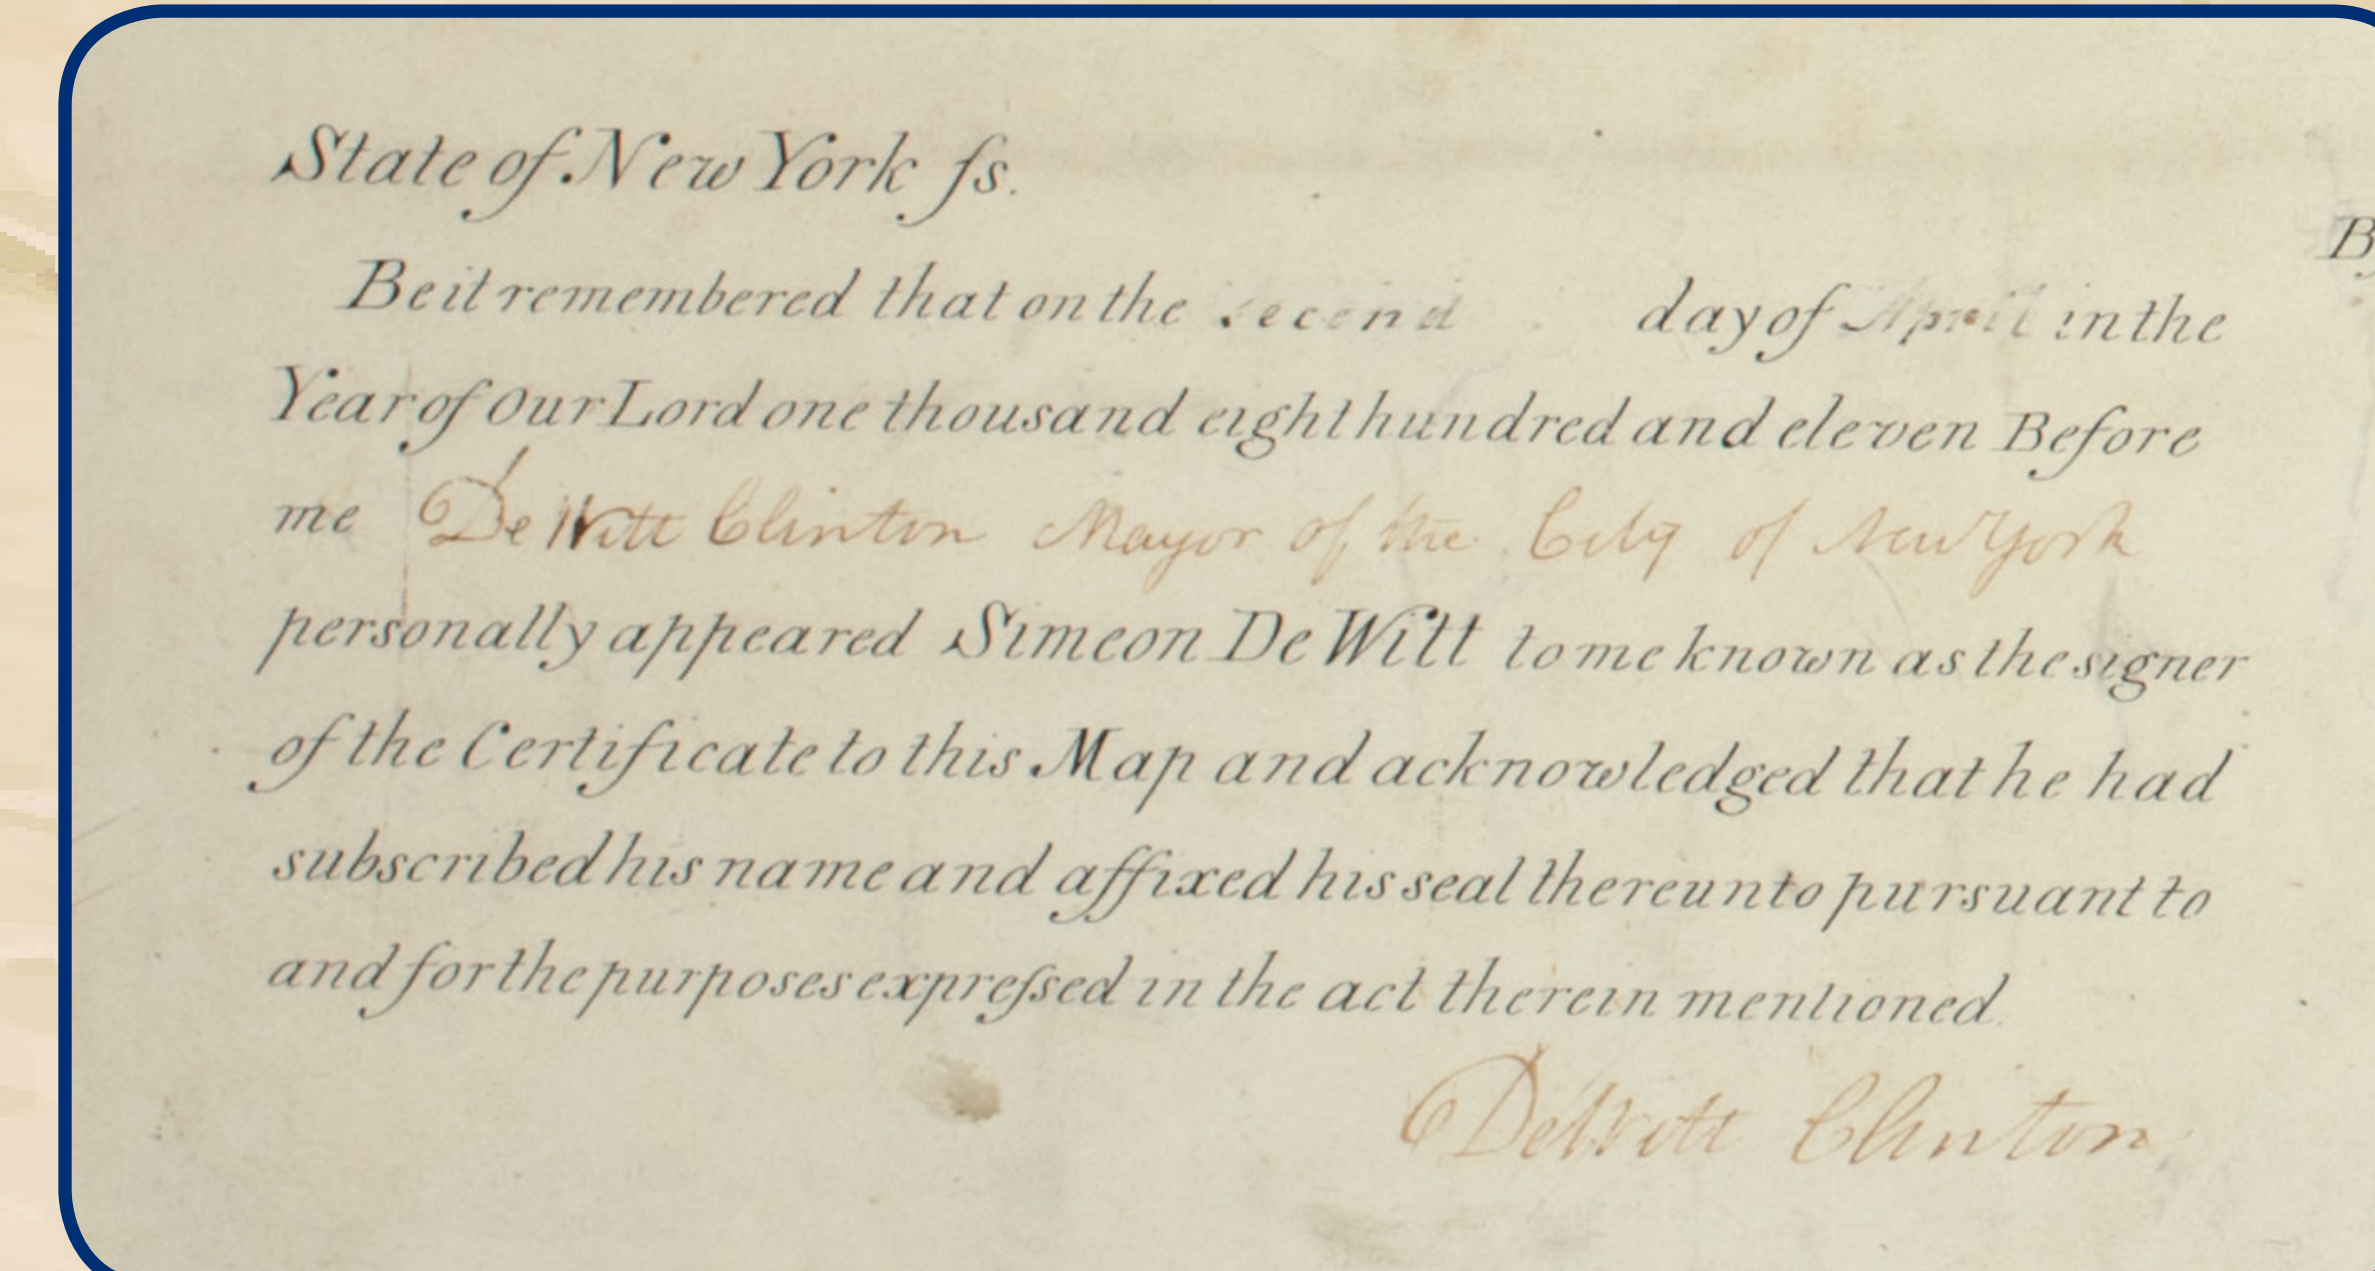 State of New York ſs.
Be it remembered that on the second day of April in the
Year of our Lord one thousand eight hundred and eleven Before
me De Witt Clinton Mayor of the City of New York
personally appeared Simeon De Witt to me known as the signer
of the Certificate to this Map and acknowledged that he had
subscribed his name and affixed his seal thereunto pursuant to
and for the purposes expreſsed in the act therein mentioned.
DeWitt Clinton